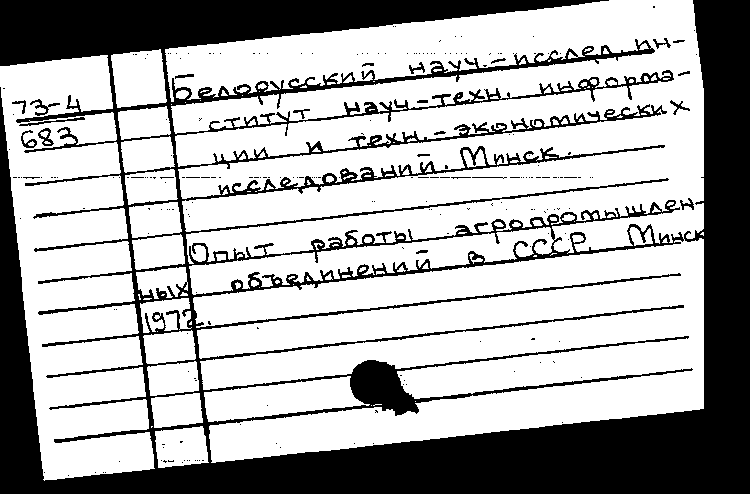 73-4
683
Белорусский науч.-исслед. ин-
ститут науч.-техн. информа-
ции и техн.-экономических
исследований. Минск.
Опыт работы агропромышлен-
ных объединений в СССР. Минск
1972.